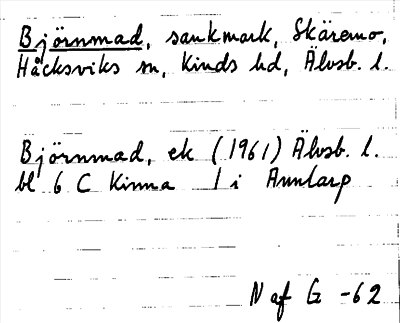 Björnmad, sankmark, Skäremo,
Håcksviks sn, Kinds hd, Älvsb. l.
Björnmad, ek (1961) Älvsb. l.
bl 6 C Kinna 1 i Anntarp
N af G -62